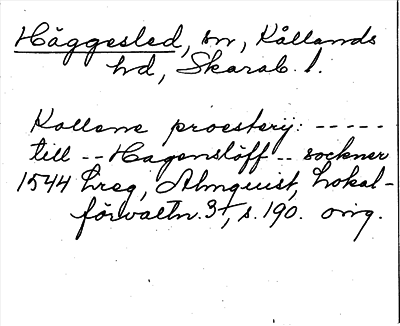 Häggesled, sn, Kållands
hd, Skarab. l.
Kollene proestery: -----
till -- Hagenslöff -- sockner
1544 hreg, Almquist, Lokal-
förvaltn. 3, s. 190. orig.